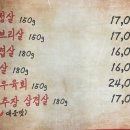 살 150g 17,0
브리살 150g 17,0
겹살 180g 16,0
살 180g 16,0
우육회 150g 24,0
추장 삼겹살 180g 17,0